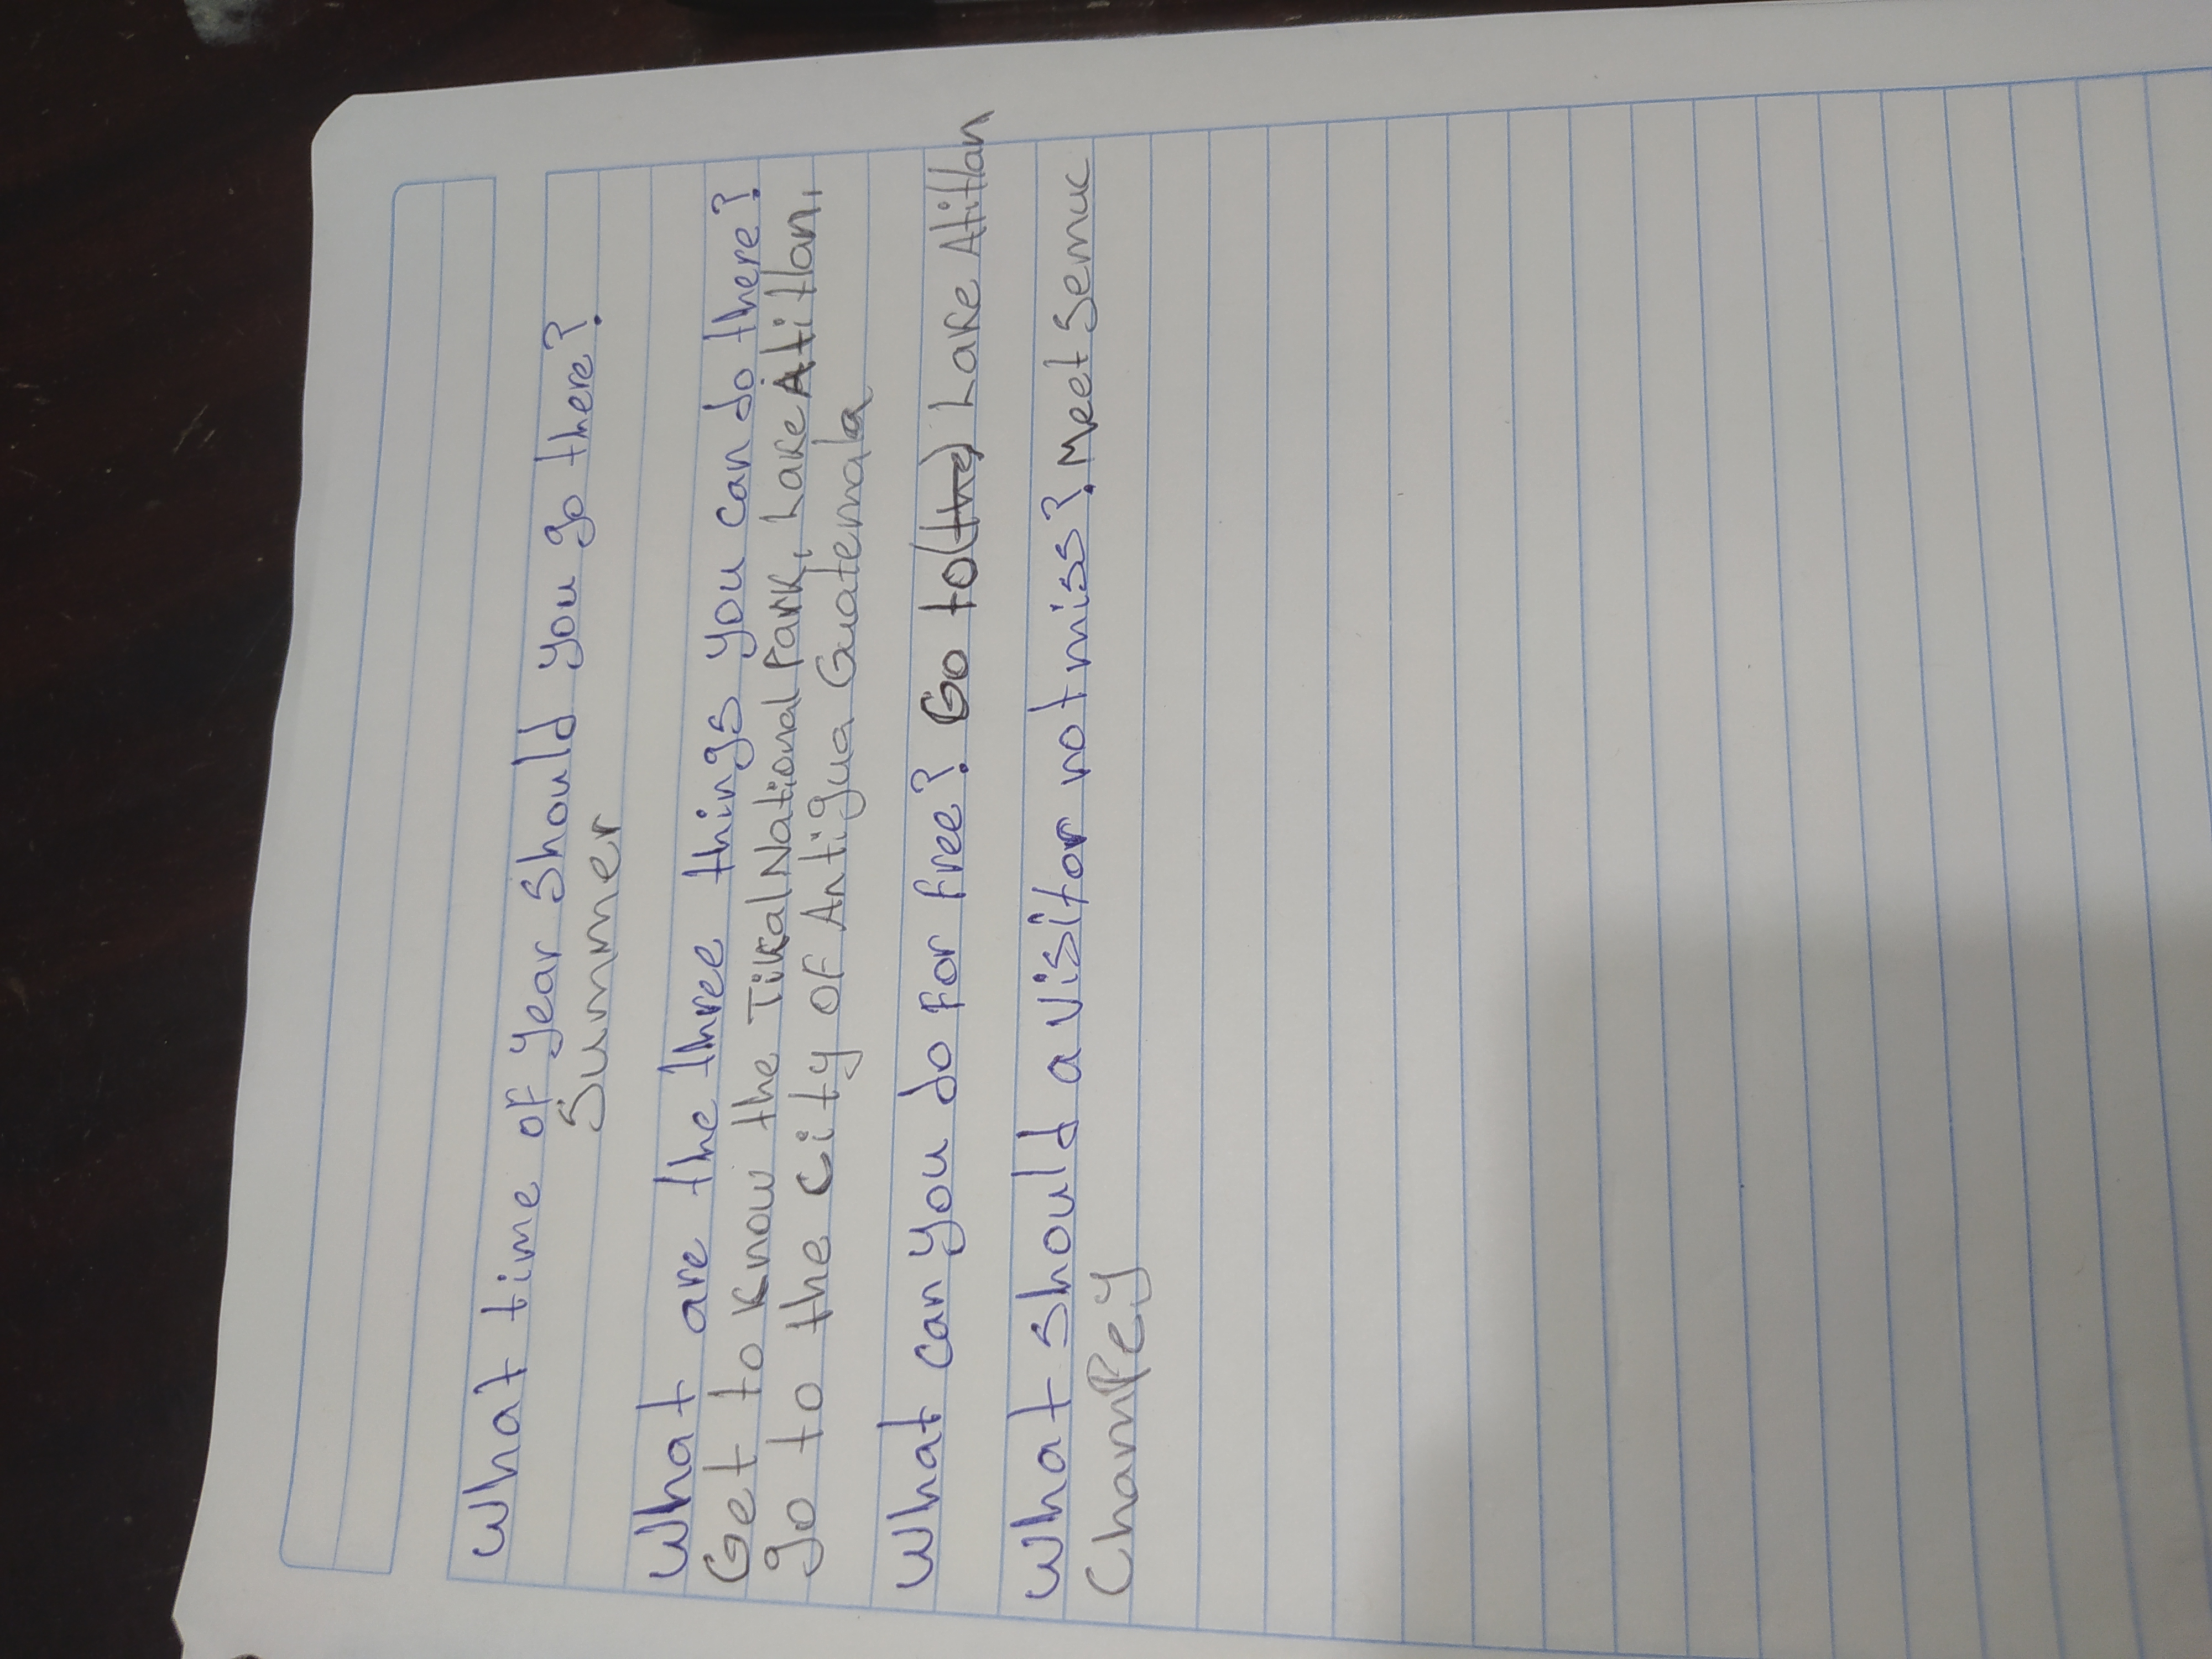 What time of year should you go there?
Summer
What are the three things you can do there?
Get to know the Tikal National Park, Lake Atitlan,
go to the city of Antigua Guatemala
What can you do for free? Go to (the) Lake Atitlan
What should a visitor not miss? Meet Semuc
Champey